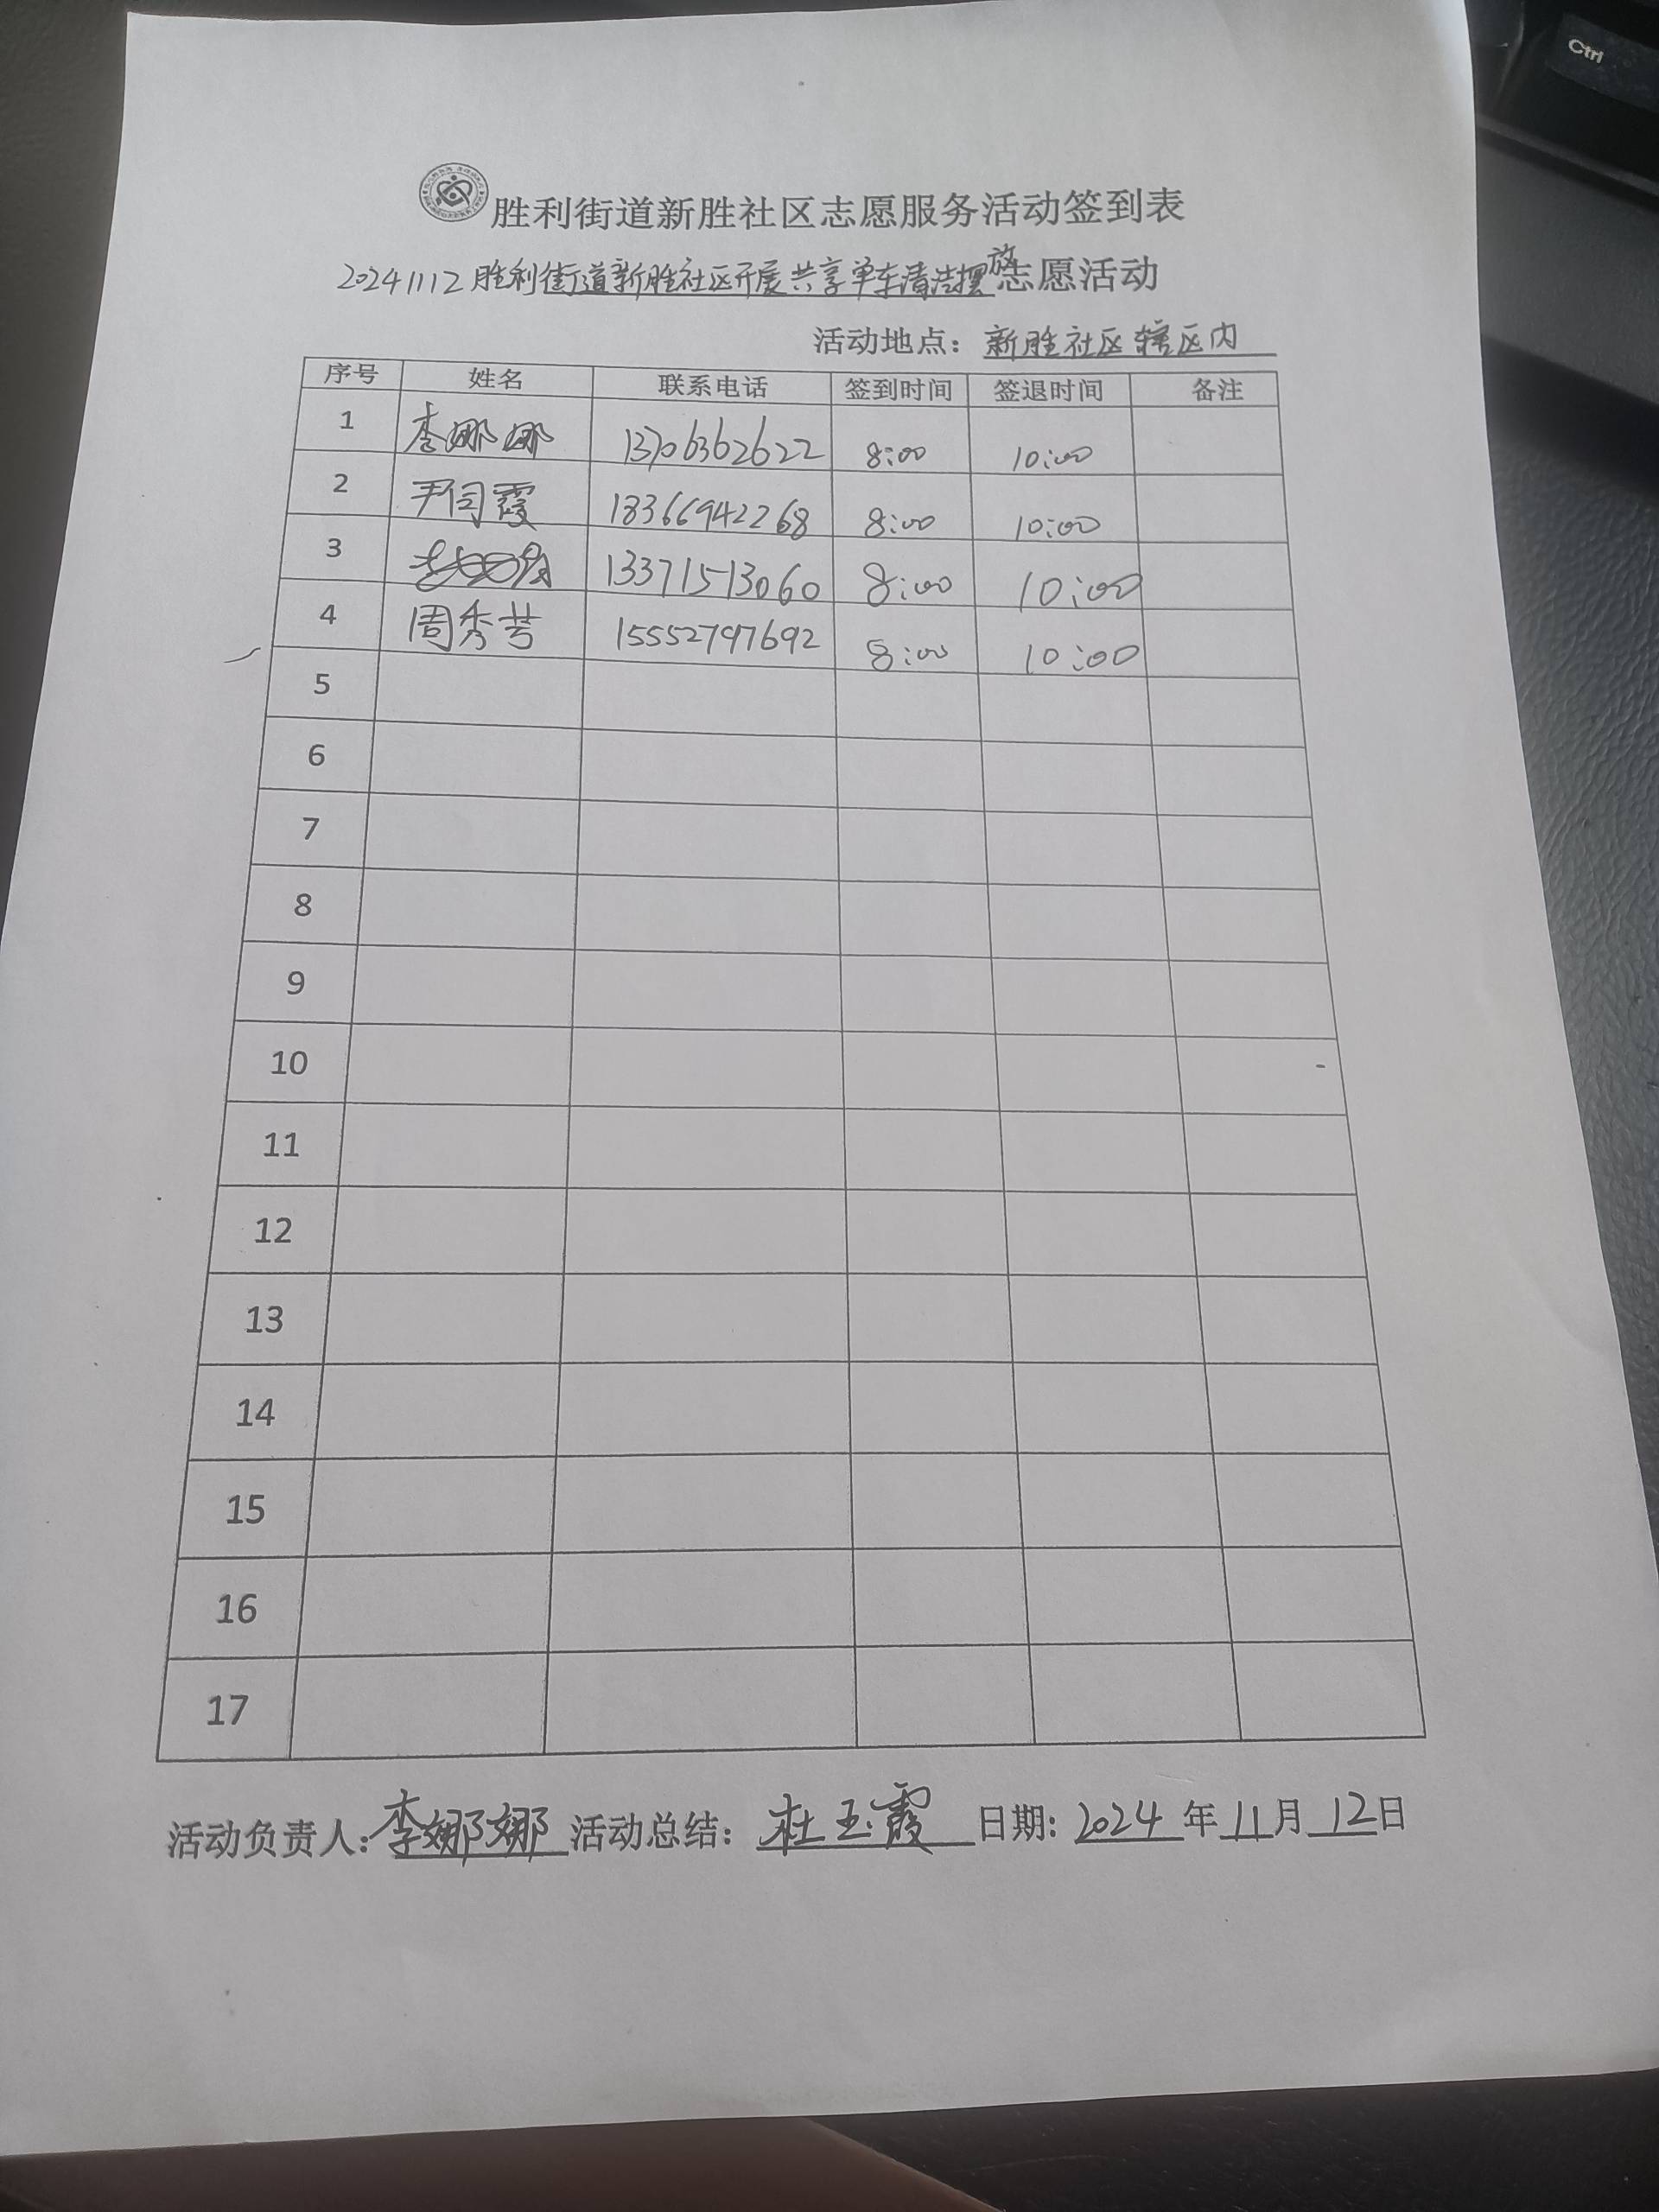 胜利街道新胜社区志愿服务活动签到表
20241112胜利街道新胜社区开展共享单车清洁摆放志愿活动
活动地点：新胜社区辖区内
序号 姓名 联系电话 签到时间 签退时间 备注
1 李娜娜 13706362622 8:00 10:00
2 尹闫霞 18366942268 8:00 10:00
3 13371513060 8:00 10:00
4 周秀芳 15552797692 8:00 10:00
5
6
7
8
9
10
11
12
13
14
15
16
17
活动负责人：李娜娜 活动总结：杜玉霞 日期：2024年11月12日
Ctrl